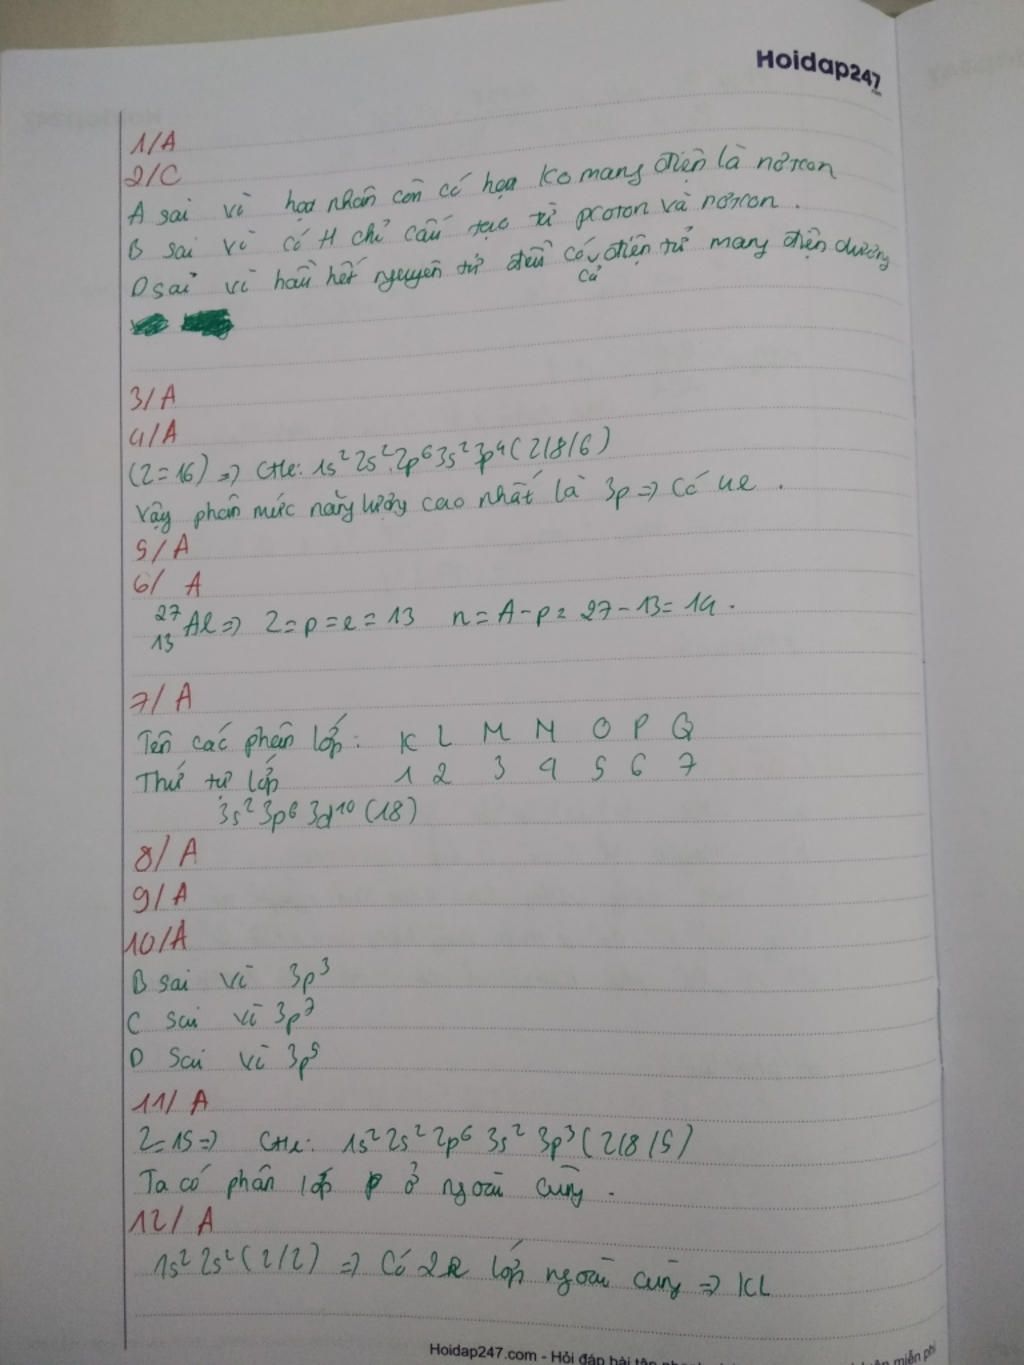 Hoidap247
.com
1/A
2/C
A sai vì hạt nhân còn có hạt ko mang điện là nơtron
B sai vì có H chỉ cấu tạo từ proton và nơtron.
D sai vì hầu hết nguyên tử đều có cả điện tử mang điện dương
3/A
4/A
(Z=16) => CHe: 1s² 2s² 2p⁶ 3s² 3p⁴ (2/8/6)
Vậy phân mức năng lượng cao nhất là 3p => Có 4e.
5/A
6/ A
²⁷₁₃Al => Z=p=e=13 n=A-p=27-13=14.
7/ A
Tên các phân lớp: K L M N O P Q
Thứ tự lớp 1 2 3 4 5 6 7
3s² 3p⁶ 3d¹⁰ (18)
8/ A
9/ A
10/A
B sai vì 3p³
C sai vì 3p⁷
D sai vì 3p⁵
11/ A
Z=15=> CHe: 1s² 2s² 2p⁶ 3s² 3p³ (2/8/5)
Ta có phân lớp p ở ngoài cùng.
12/ A
1s² 2s² (2/2) => Có 2e lớp ngoài cùng => KL
Hoidap247.com - Hỏi đáp bài tập miễn phí